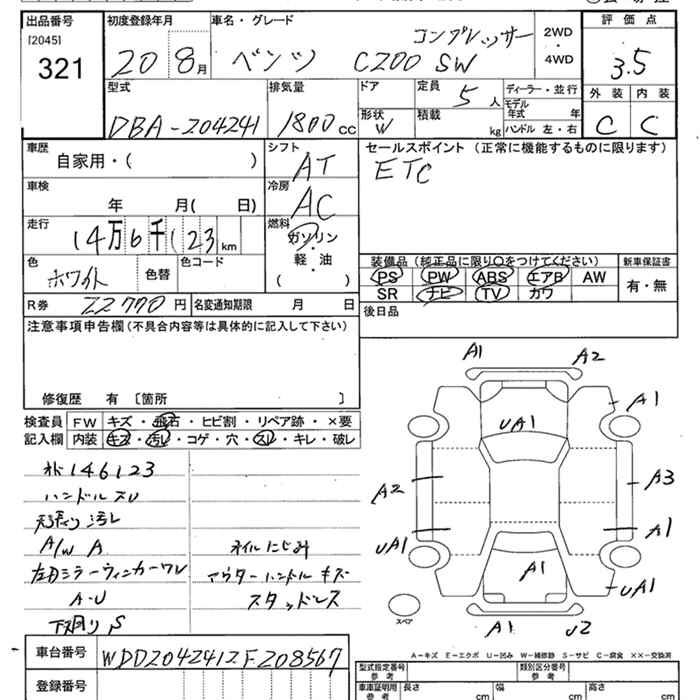 出品番号 初度登録年月 車名・グレード 評価点
[2045] コンプレッサー 2WD
321 20 8月 ベンツ C200 SW ・4WD 3.5
型式 排気量 ドア 定員 5人 ディーラー・並行 外装 内装
DBA-204241 1800cc 形状 W 積載 kg モデル年式 年 C C
ハンドル 左・右
車歴 シフト セールスポイント (正常に機能するものに限ります)
自家用・( ) AT ETC
車検 冷房
年 月( 日) AC
走行 燃料
14万6千123km ガソリン
・
軽・油
( )
装備品(純正品に限り○をつけてください) 新車保証書
色 色替 色コード PS PW ABS エアB AW 有・無
ホワイト SR ナビ TV カワ
R券 22770円 名変通知期限 月 日 後日品
注意事項申告欄(不具合内容等は具体的に記入して下さい)
修復歴 有 〔箇所 〕
検査員 FW キズ・飛石・ヒビ割・リペア跡・×要
記入欄 内装 キズ・汚レ・コゲ・穴・スレ・キレ・破レ
A1 A2
A1
UA1
A2 A3
UA1 A1
A1 UA1
A1 U2
スペア
146123
ハンドルスレ
天張り汚レ
A/W A ホイルにじみ
左ドミラーウィンカーワレ アウターハンドルキズ
A-U スタッドレス
下廻りS
A-キズ E-エクボ U-凹み W-補修跡 S-サビ C-腐食 XX-交換済
車台番号 WDD2042412F208567
型式指定番号 参考 類別区分番号 参考
登録番号 車庫証明用 参考 長さ cm 幅 cm 高さ cm